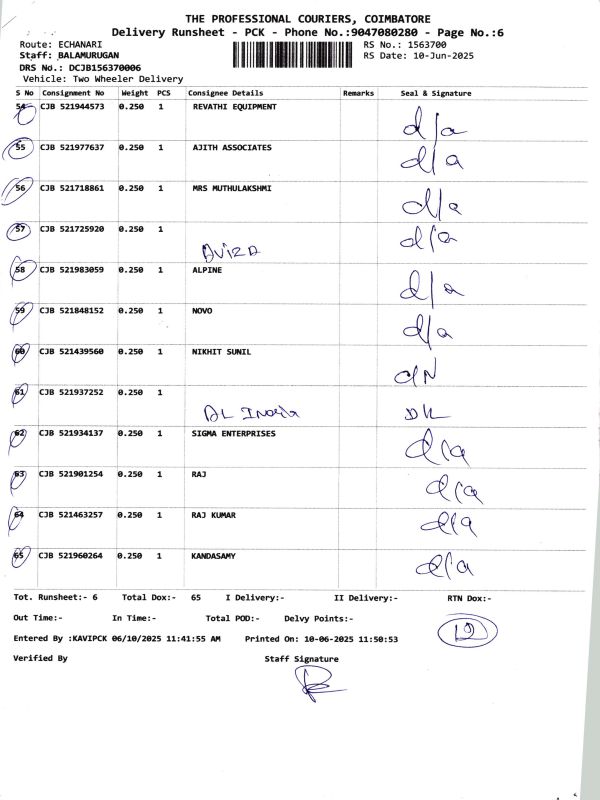 THE PROFESSIONAL COURIERS, COIMBATORE
Delivery Runsheet - PCK - Phone No.:9047080280 - Page No.:6
Route: ECHANARI
RS No.: 1563700
Staff: BALAMURUGAN
RS Date: 10-Jun-2025
DRS No.: DCJB156370006
Vehicle: Two Wheeler Delivery
S No Consignment No Weight PCS Consignee Details Remarks Seal & Signature
54 CJB 521944573 0.250 1 REVATHI EQUIPMENT d/a
55 CJB 521977637 0.250 1 AJITH ASSOCIATES d/a
56 CJB 521718861 0.250 1 MRS MUTHULAKSHMI d/a
57 CJB 521725920 0.250 1 d/a
58 CJB 521983059 0.250 1 ALPINE d/a
59 CJB 521848152 0.250 1 NOVO d/a
60 CJB 521439560 0.250 1 NIKHIT SUNIL
61 CJB 521937252 0.250 1
62 CJB 521934137 0.250 1 SIGMA ENTERPRISES d/a
63 CJB 521901254 0.250 1 RAJ d/a
64 CJB 521463257 0.250 1 RAJ KUMAR d/a
65 CJB 521960264 0.250 1 KANDASAMY d/a
Tot. Runsheet:- 6 Total Dox:- 65 I Delivery:- II Delivery:- RTN Dox:-
Out Time:- In Time:- Total POD:- Delvy Points:-
Entered By :KAVIPCK 06/10/2025 11:41:55 AM Printed On: 10-06-2025 11:50:53
Verified By Staff Signature